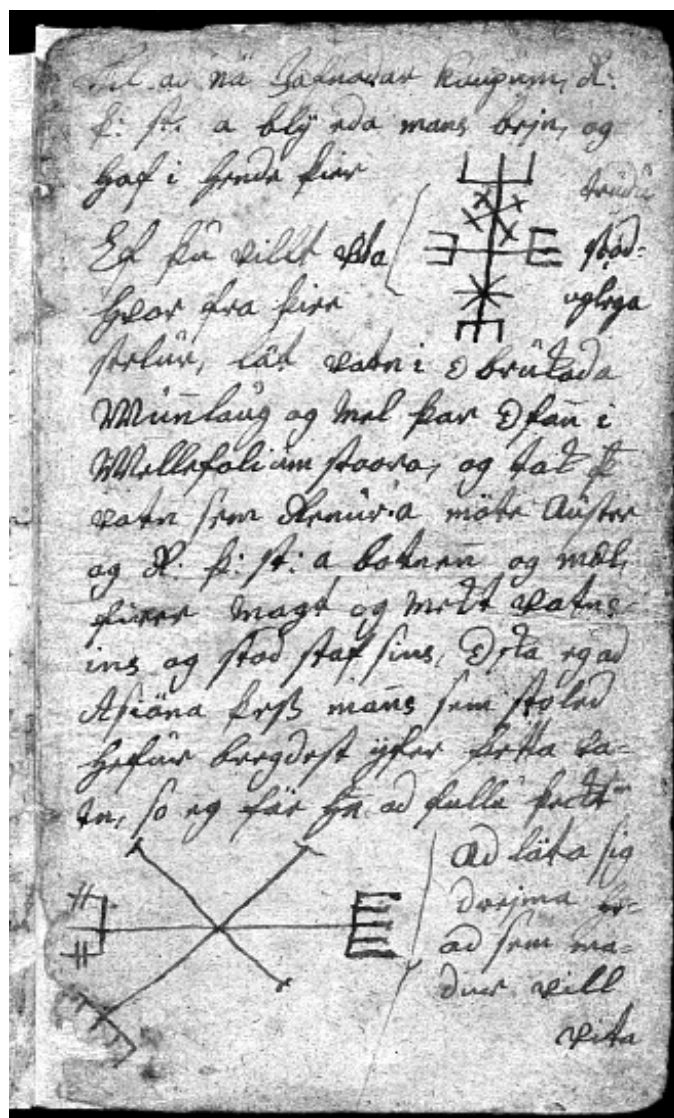 Til að ná Jafnadar kaupum, R:
þ: st: a blÿ eda mans bejn, og
haf i hende þier
trudu
Ef þu villt vita
stöd-
hvor fra þier
uglega
stelur, lát vatn i óbrükada
Munnlaug og mel þar Ofan i
Mellefolium stoora, og tak þ
vatn sem Renur a móte Auster
og R: þ: st: a botnenn og mæl
firer magt og mekt vatns-
ins og stód staf sins, Oska eg ad
Asiöna þess manns sem stoled
hefur bregdest ÿfer þetta va-
tn, so eg fär hn ad fullu þekt
Ad läta sig
dreÿma hv-
ad sem ma-
dur vill
vita